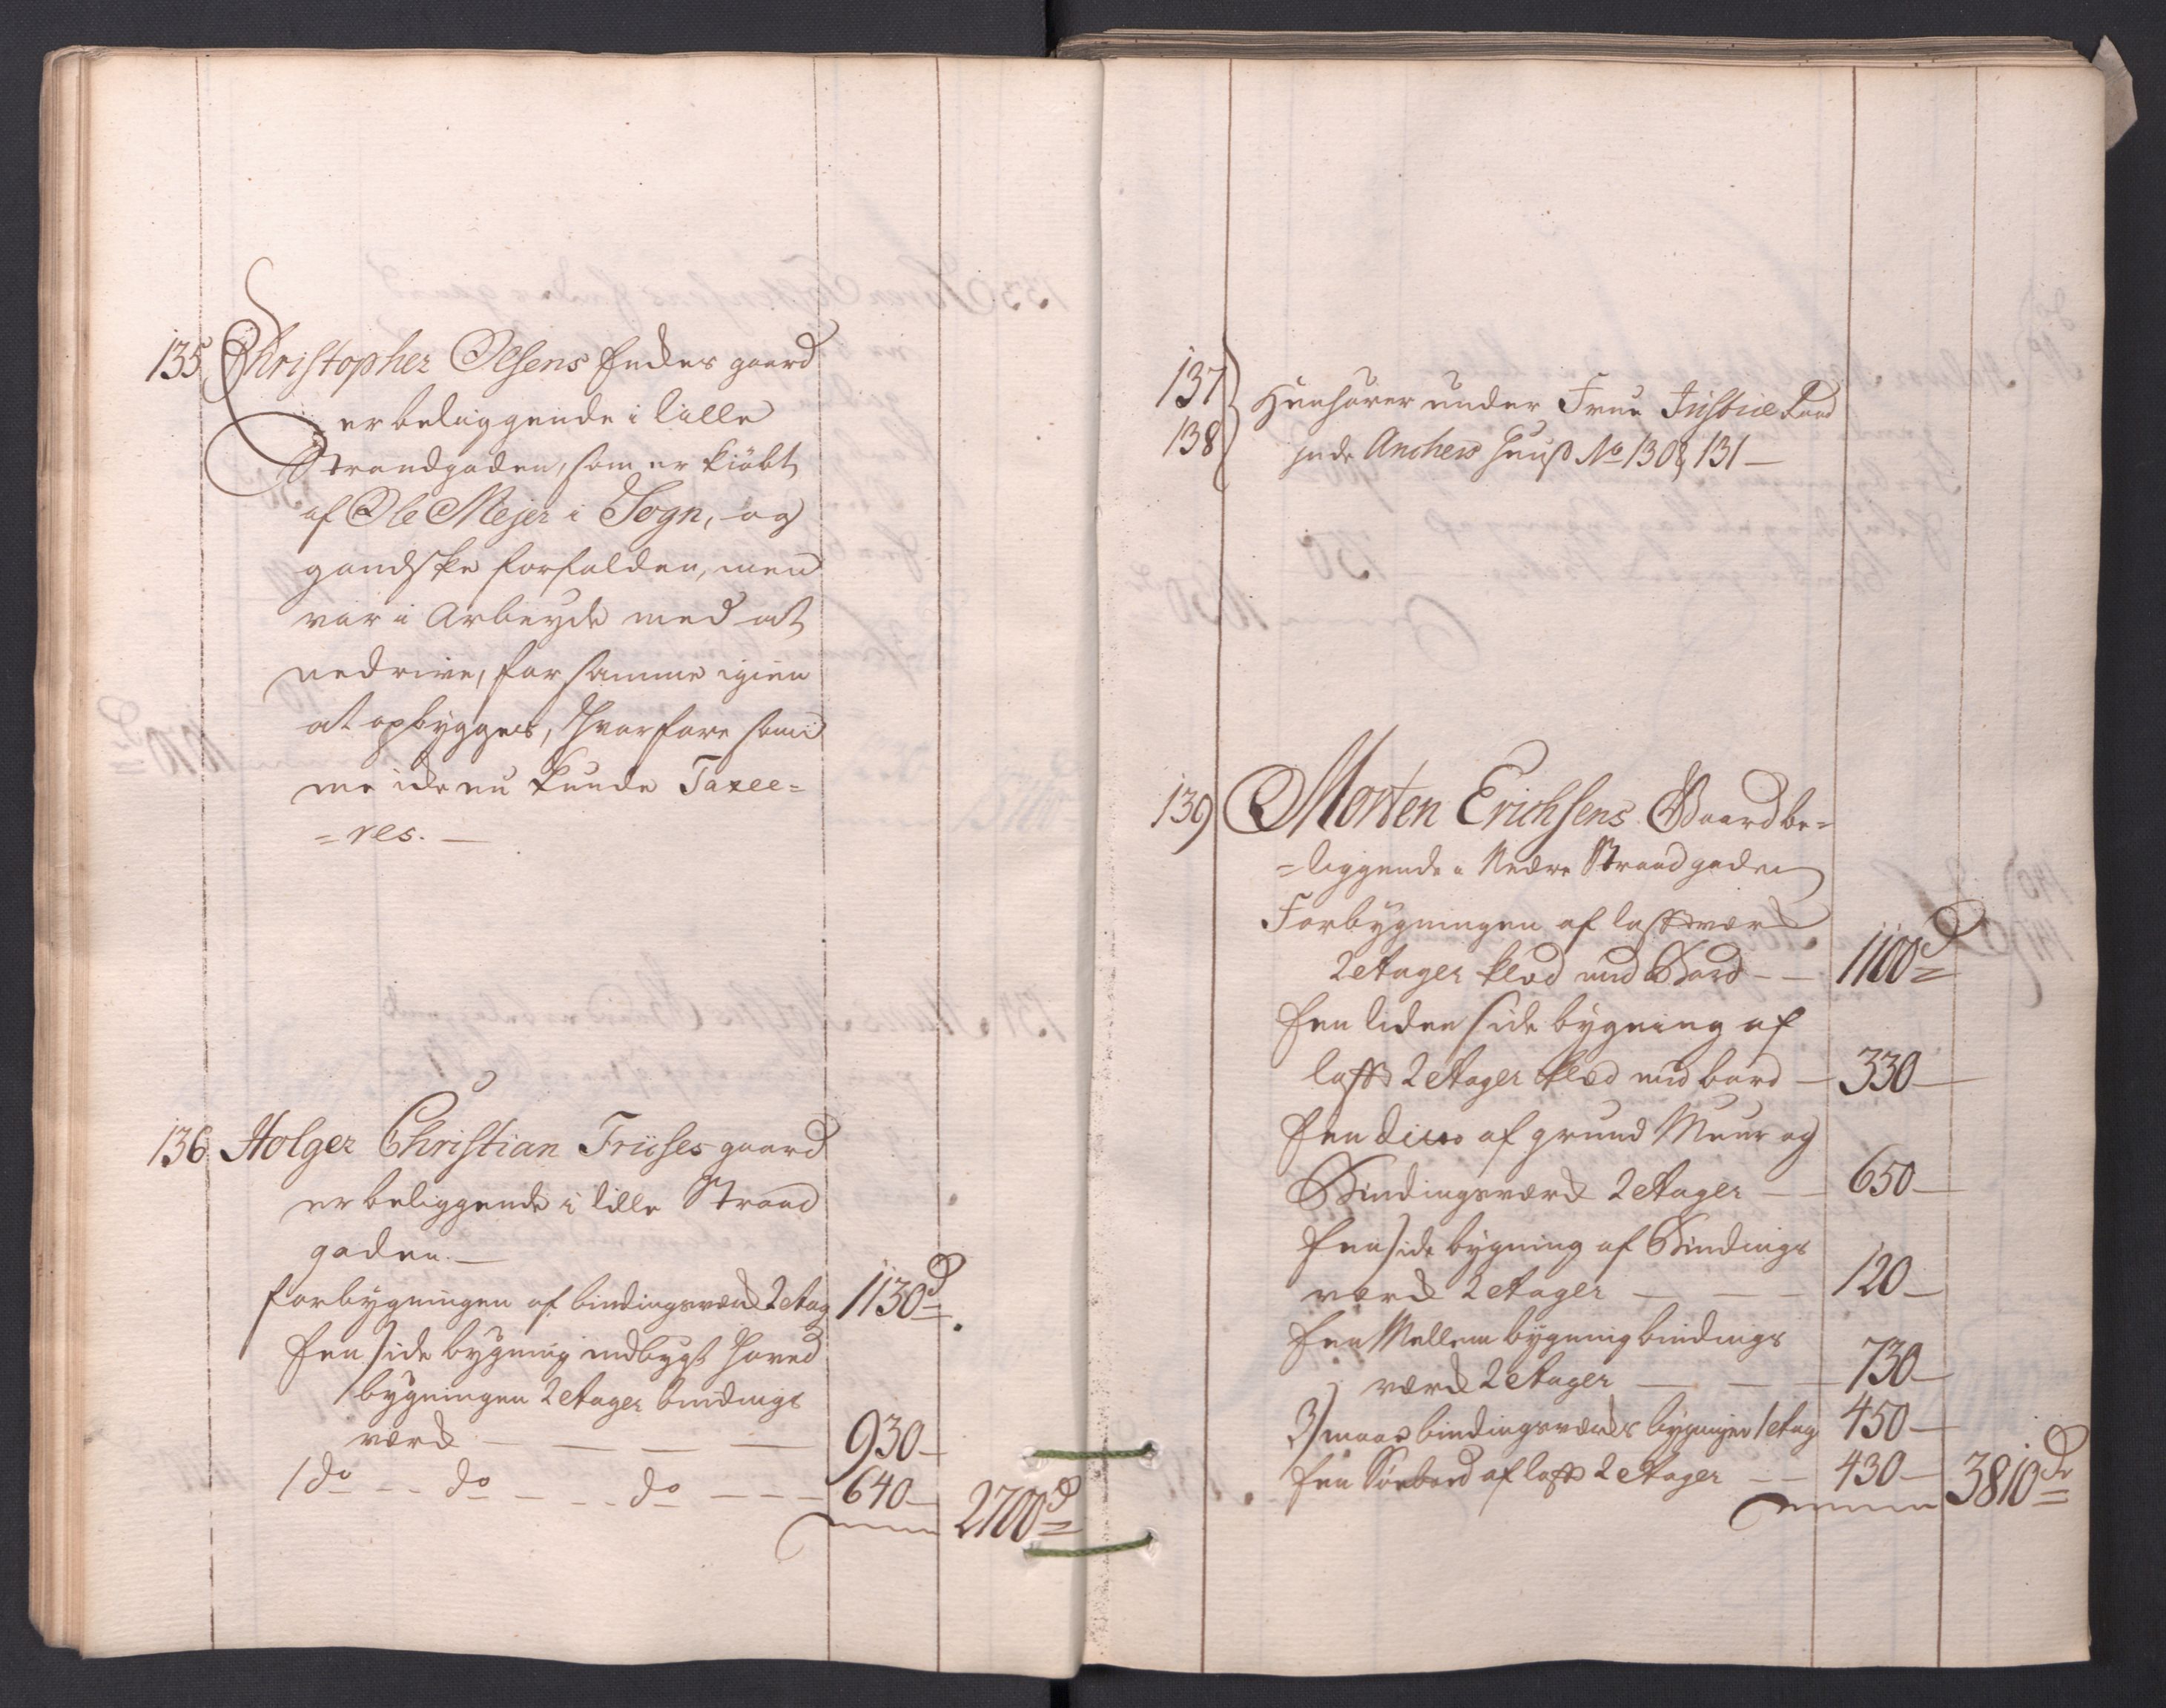 135 Christopher Olsens Enckes gaard
er beliggende i lille
Strandgaden, som er kiöbt
af Ole Mejer i Sogn, og
gandske forfalden, men
var i Arbeyde med at
nedrive, for samme igien
at opbygges, hvorfore sam̄
me icke nu kunde Taxee=
=res. —
136 Holger Christian Friises gaard
er beliggende i lille Strand
gaden. —
forbygningen af bindingsverck 2 Etag 1130 d
Een side bygning indbygt hoved
bygningen 2 Etager bindings
verck — — — — 930 —
1 do — do — do — — — 640 — 2700 d
137
138 Henhörer under Frue Justice Raad
inde Anchers Huuß No 130 & 131 —
139 Morten Erichsens Gaard be=
=liggende i Nedre Strandgaden
Forbygningen af lafftverck
2 Etager klæd med Bord — — 1100 d
Een liden side bygning af
lafft 2 Etager klæd med bord — 330 —
Een dito af grund Muur og
Bindingsverck 2 Etager — — 650 —
Een side bygning af Bindings
verck 2 Etager — — — 120 —
Een Mellem bygning bindings
verck 2 Etager — — — 730 —
3 smaae bindingsvercks bygninger 1 Etag 450 —
Een Söeboed af lafft 2 Etager — — 430 — 3810 dr